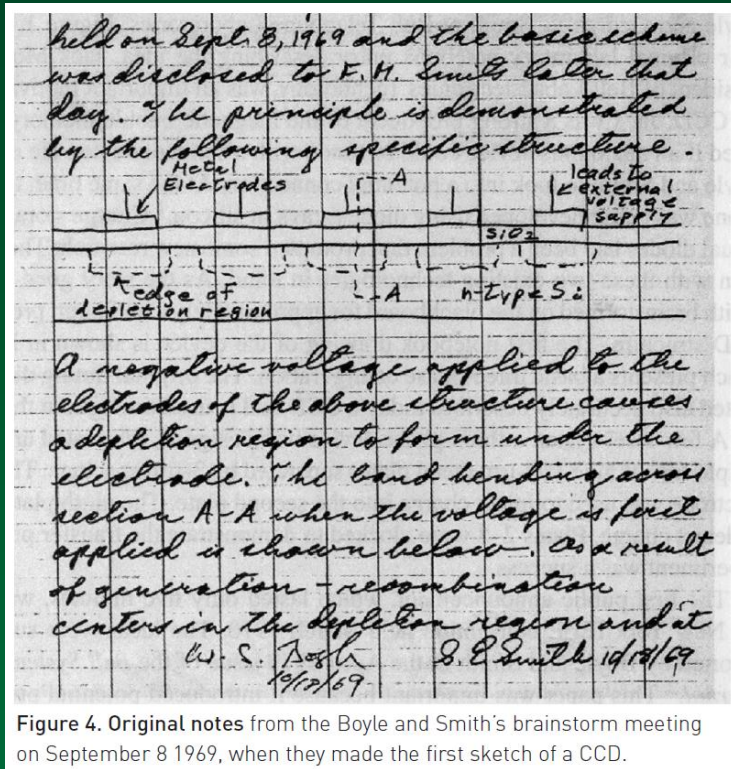 held on Sept. 8, 1969 and the basic scheme
was disclosed to F. M. Smits later that
day. The principle is demonstrated
by the following specific structure
Metal
Electrodes
A
leads to
external
voltage
supply
SiO2
edge of
depletion region
A
n-type Si
A negative voltage applied to the
electrodes of the above structure causes
a depletion region to form under the
electrode. The band bending across
section A-A when the voltage is first
applied is shown below. As a result
of generation - recombination
centers in the depletion region and at
W. S. Boyle
10/17/69
G E Smith 10/17/69
Figure 4. Original notes from the Boyle and Smith's brainstorm meeting
on September 8 1969, when they made the first sketch of a CCD.